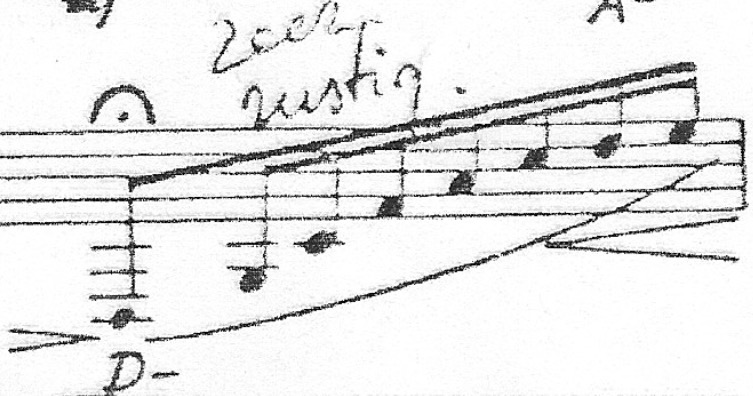 A-
zeer
rustig.
D-